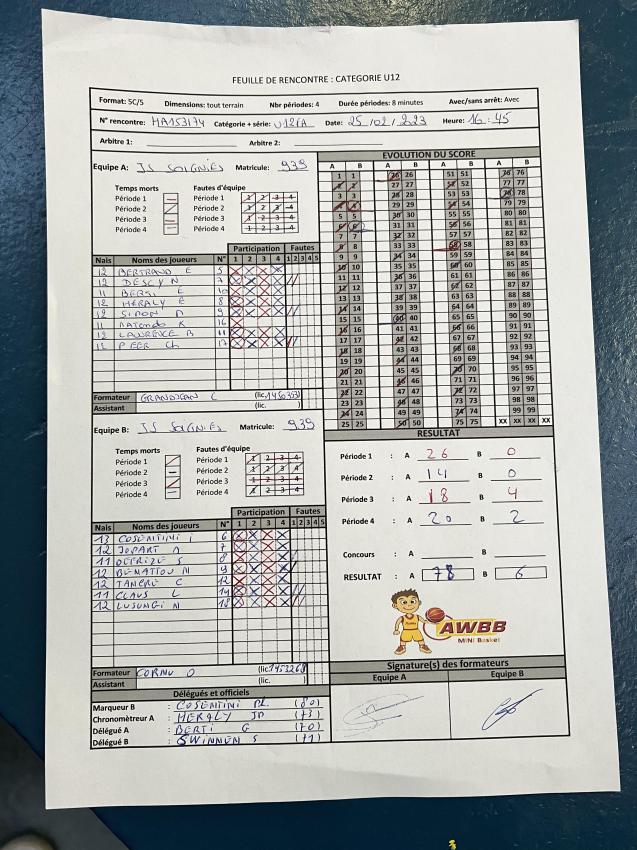 FEUILLE DE RENCONTRE : CATEGORIE U12
Format: 5C/5 Dimensions: tout terrain Nbr périodes: 4 Durée périodes: 8 minutes Avec/sans arrêt: Avec
N° rencontre: MA153174 Catégorie + série: U12FA Date: 25/02/2023 Heure: 16:45
Arbitre 1: Arbitre 2:
Equipe A: JS SOIGNIES Matricule: 939
Temps morts Fautes d'équipe
Période 1 1 2 3 4
Période 2 1 2 3 4
Période 3 1 2 3 4
Période 4 1 2 3 4
Participation Fautes
Nais Noms des joueurs N° 1 2 3 4 1 2 3 4 5
12 BERTRAND E 5
12 DESCY N 7
11 L
12 HERALY E 8
12 SIMON 9
11 K 16
12 LAWRENCE
PEER Ch 17
Formateur GRANDJEAN C (lic. )
Assistant (lic. )
Equipe B: JS SOIGNIES Matricule: 939
Temps morts Fautes d'équipe
Période 1 1 2 3 4
Période 2 1 2 3 4
Période 3 1 2 3 4
Période 4 1 2 3 4
Participation Fautes
Nais Noms des joueurs N° 1 2 3 4 1 2 3 4 5
13 COSENTINI I 6
12 JOPART 7
11 DEFRIZE S 8
12 9
12 TANCRE C 12
11 CLAUS L 14
12 LUSUNGI N 18
Formateur CORNU O (lic. )
Assistant (lic. )
Délégués et officiels
Marqueur B COSENTINI PL (80)
Chronomètreur A HERALY JP (73)
Délégué A BERTI G (70)
Délégué B SWINNEN S (71)
EVOLUTION DU SCORE
A B A B A B A B
1 1 26 26 51 51 76 76
2 2 27 27 52 52 77 77
3 3 28 28 53 53 78 78
4 4 29 29 54 54 79 79
5 5 30 30 55 55 80 80
6 6 31 31 56 56 81 81
7 7 32 32 57 57 82 82
8 8 33 33 58 58 83 83
9 9 34 34 59 59 84 84
10 10 35 35 60 60 85 85
11 11 36 36 61 61 86 86
12 12 37 37 62 62 87 87
13 13 38 38 63 63 88 88
14 14 39 39 64 64 89 89
15 15 40 40 65 65 90 90
16 16 41 41 66 66 91 91
17 17 42 42 67 67 92 92
18 18 43 43 68 68 93 93
19 19 44 44 69 69 94 94
20 20 45 45 70 70 95 95
21 21 46 46 71 71 96 96
22 22 47 47 72 72 97 97
23 23 48 48 73 73 98 98
24 24 49 49 74 74 99 99
25 25 50 50 75 75 XX XX XX XX
RESULTAT
Période 1 : A 26 B 0
Période 2 : A 14 B 0
Période 3 : A 18 B 4
Période 4 : A 20 B 2
Concours : A B
RESULTAT : A 78 B 6
AWBB
MINI Basket
Signature(s) des formateurs
Equipe A Equipe B